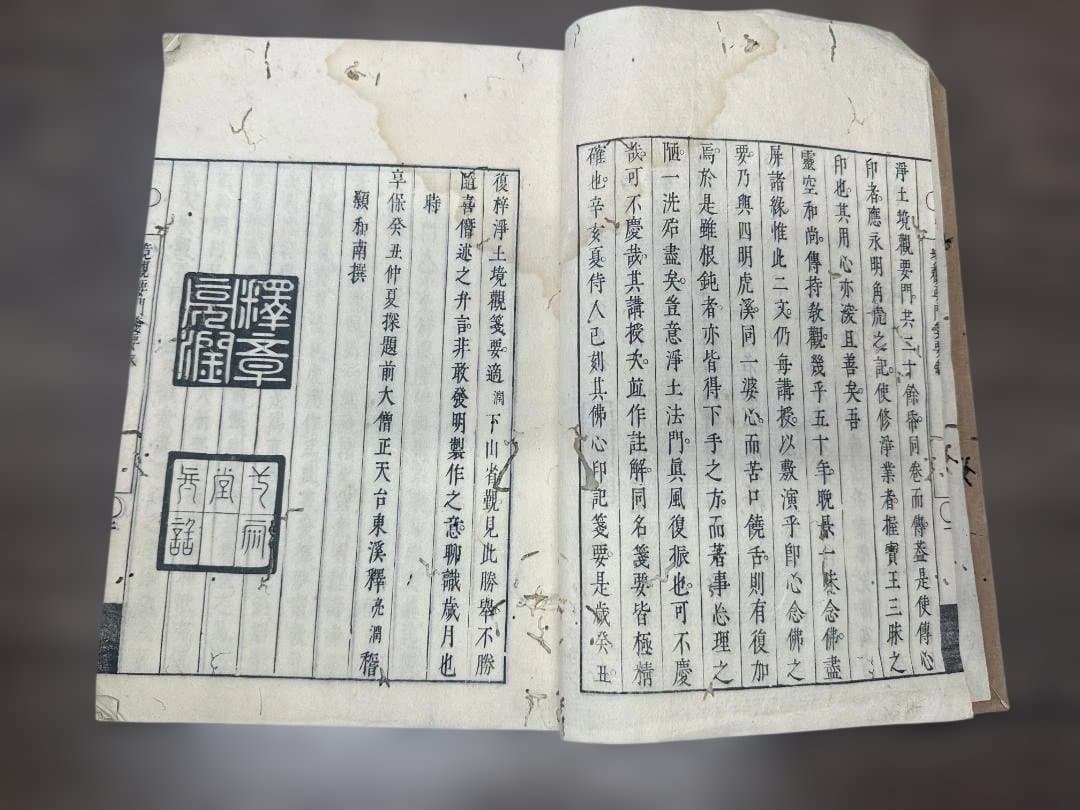 淨土境觀要門共三十餘帋同卷而傳葢是使傳心
印者應永明角虎之記使修淨業者握寶王三昧之
印也其用心亦深且善矣吾
靈空和尚傳持敎觀幾乎五十年晚景一味念佛盡
屏諸緣惟此二文仍每講授以敷演乎卽心念佛之
要乃與四明虎溪同一婆心而苦口饒舌則有復加
焉於是雖根鈍者亦皆得下手之方而著事迷理之
陋一洗殆盡矣豈意淨土法門眞風復振也可不慶
哉可不慶哉其講授次並作註解同名箋要皆極精
確也辛亥夏侍人已刻其佛心印記箋要是歲癸丑
復梓淨土境觀箋要適潤下山省覲見此勝舉不勝
隨喜僭述之弁言非敢發明製作之意聊識歲月也
時
享保癸丑仲夏探題前大僧正天台東溪釋亮潤稽
顙和南撰
釋章
亮潤
堂